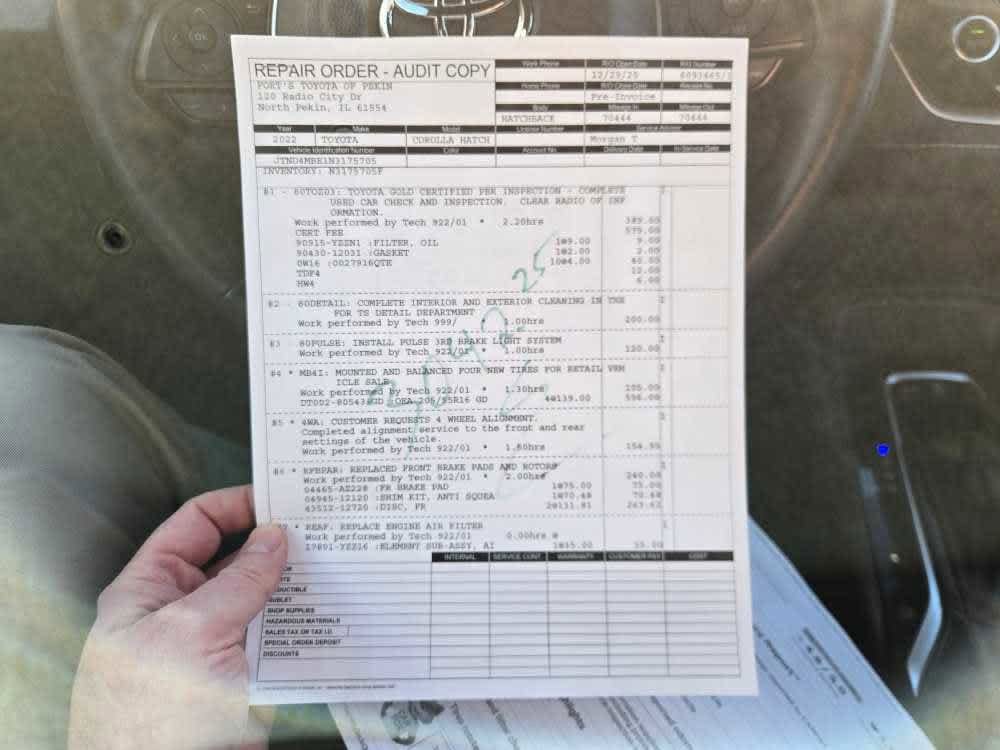 OK
REPAIR ORDER - AUDIT COPY
PORT'S TOYOTA OF PEKIN
120 Radio City Dr
North Pekin, IL 61554
Work Phone R/O Open Date R/O Number
12/29/25
Home Phone R/O Close Date
Pre-Invoice
Body Mileage In Mileage Out
HATCHBACK 70444 70444
Year Make Model License Number Service Advisor
2022 TOYOTA COROLLA HATCH Morgan T
Vehicle Identification Number Color Account No. Delivery Date In-Service Date
JTND4MBE1N3175705
INVENTORY: N3175705F
#1 - 80TOZ03: TOYOTA GOLD CERTIFIED PER INSPECTION - COMPLETE I
USED CAR CHECK AND INSPECTION. CLEAR RADIO OF INF
ORMATION.
Work performed by Tech 922/01 * 2.20hrs 389.00
CERT FEE 575.00
90915-YZZN1 :FILTER, OIL 1@9.00 9.00
90430-12031 :GASKET 1@2.00 2.00
0W16 :0027916QTE 10@4.00 40.00
TDF4 12.00
HW4 6.00
#2 - 80DETAIL: COMPLETE INTERIOR AND EXTERIOR CLEANING IN THE I
FOR TS DETAIL DEPARTMENT
Work performed by Tech 999/ * 1.00hrs 200.00
#3 80PULSE: INSTALL PULSE 3RD BRAKE LIGHT SYSTEM I
Work performed by Tech 922/01 * 1.00hrs 120.00
#4 * MB4I: MOUNTED AND BALANCED FOUR NEW TIRES FOR RETAIL VEH I
ICLE SALE
Work performed by Tech 922/01 * 1.30hrs
DT002-80543-GD :OEA 205/55R16 GD 4@139.00 556.00
#5 * 4WA: CUSTOMER REQUESTS 4 WHEEL ALIGNMENT. I
Completed alignment service to the front and rear
settings of the vehicle.
Work performed by Tech 922/01 * 1.80hrs 154.95
#6 * RFBPAR: REPLACED FRONT BRAKE PADS AND ROTORS I
Work performed by Tech 922/01 * 2.00hrs 240.00
04465-AZ228 :FR BRAKE PAD 1@75.00 75.00
04945-12120 :SHIM KIT, ANTI SQUEA 1@70.48 70.48
43512-12720 :DISC, FR 2@131.81 263.62
* REAF: REPLACE ENGINE AIR FILTER I
Work performed by Tech 922/01 0.00hrs @
17801-YZZ16 :ELEMENT SUB-ASSY, AI 1@35.00 35.00
3042.25
INTERNAL SERVICE CONT. WARRANTY CUSTOMER PAY COST
SHOP SUPPLIES
HAZARDOUS MATERIALS
SALES TAX OR TAX I.D.
SPECIAL ORDER DEPOSIT
DISCOUNTS